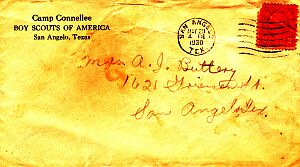 Camp Connellee
BOY SCOUTS OF AMERICA
San Angelo, Texas
SAN ANGELO
1930
TEX.
Mrs. A. J. Buttery
1621
St.
San Angelo, Tex.